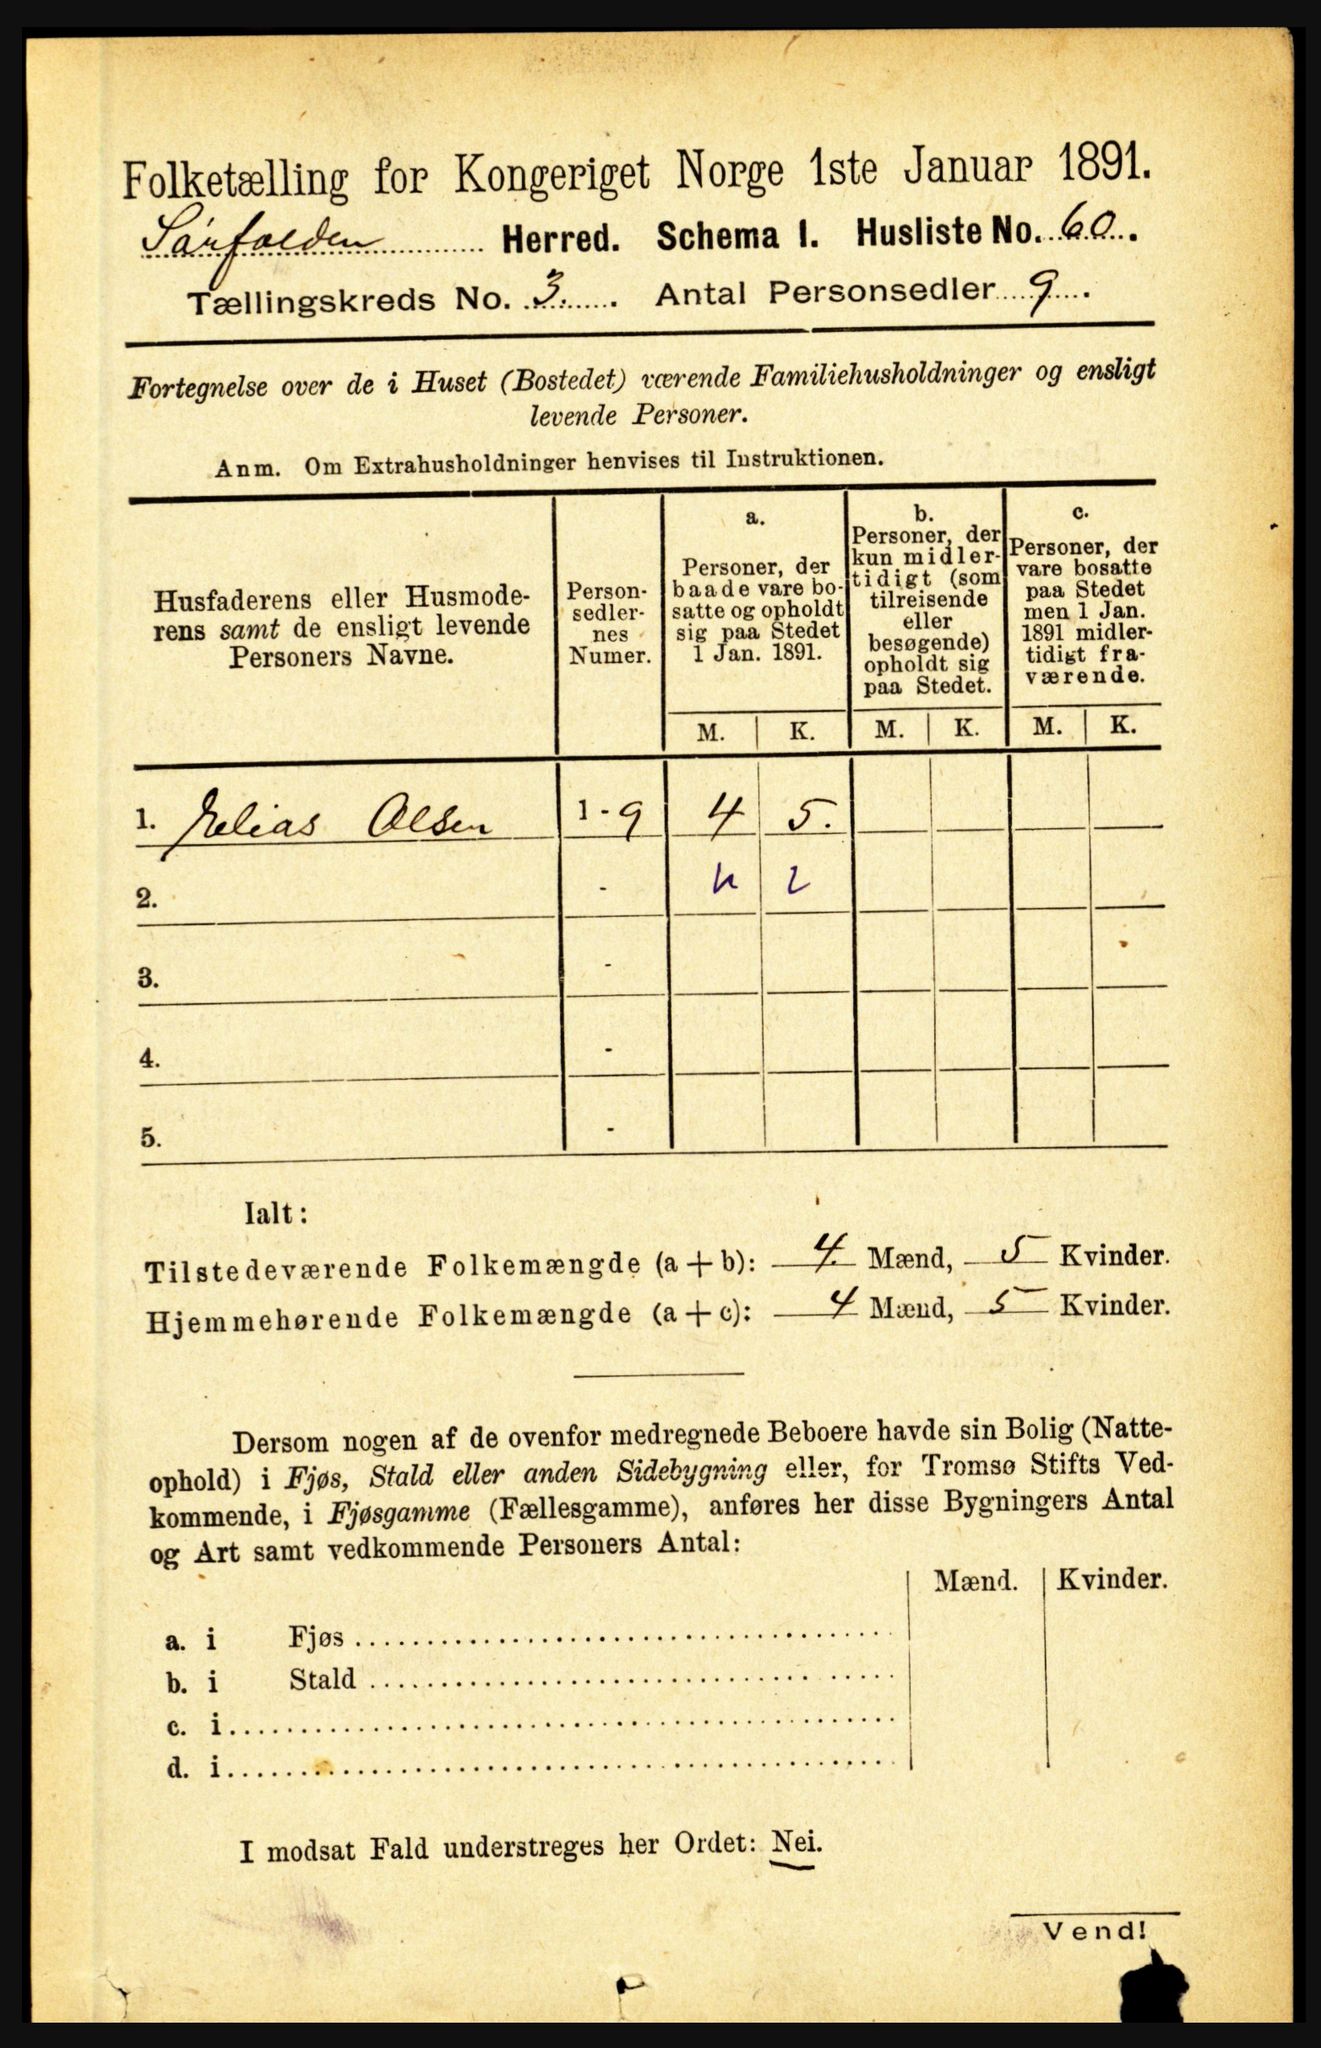 Folketælling for Kongeriget Norge 1ste Januar 1891.
Sørfolden Herred. Schema I. Husliste No. 60.
Tællingskreds No. 3. Antal Personsedler 9.
Fortegnelse over de i Huset (Bostedet) værende Familiehusholdninger og ensligt
levende Personer.
Anm. Om Extrahusholdninger henvises til Instruktionen.
Husfaderens eller Husmode-
rens samt de ensligt levende
Personers Navne.
Person-
sedler-
nes
Numer.
a.
Personer, der
baade vare bo-
satte og opholdt
sig paa Stedet
1 Jan. 1891.
b.
Personer, der
kun midler-
tidigt (som
tilreisende
eller
besøgende)
opholdt sig
paa Stedet.
c.
Personer, der
vare bosatte
paa Stedet
men 1 Jan.
1891 midler-
tidigt fra-
værende.
M. K. M. K. M. K.
1. Elias Olsen 1-9 4 5.
2. -
3. -
4. -
5. -
Ialt:
Tilstedeværende Folkemængde (a+b): 4. Mænd, 5 Kvinder.
Hjemmehørende Folkemængde (a+c): 4 Mænd, 5 Kvinder.
Dersom nogen af de ovenfor medregnede Beboere havde sin Bolig (Natte-
ophold) i Fjøs, Stald eller anden Sidebygning eller, for Tromsø Stifts Ved-
kommende, i Fjøsgamme (Fællesgamme), anføres her disse Bygningers Antal
og Art samt vedkommende Personers Antal:
Mænd. Kvinder.
a. i Fjøs
b. i Stald
c. i
d. i
I modsat Fald understreges her Ordet: Nei.
Vend!